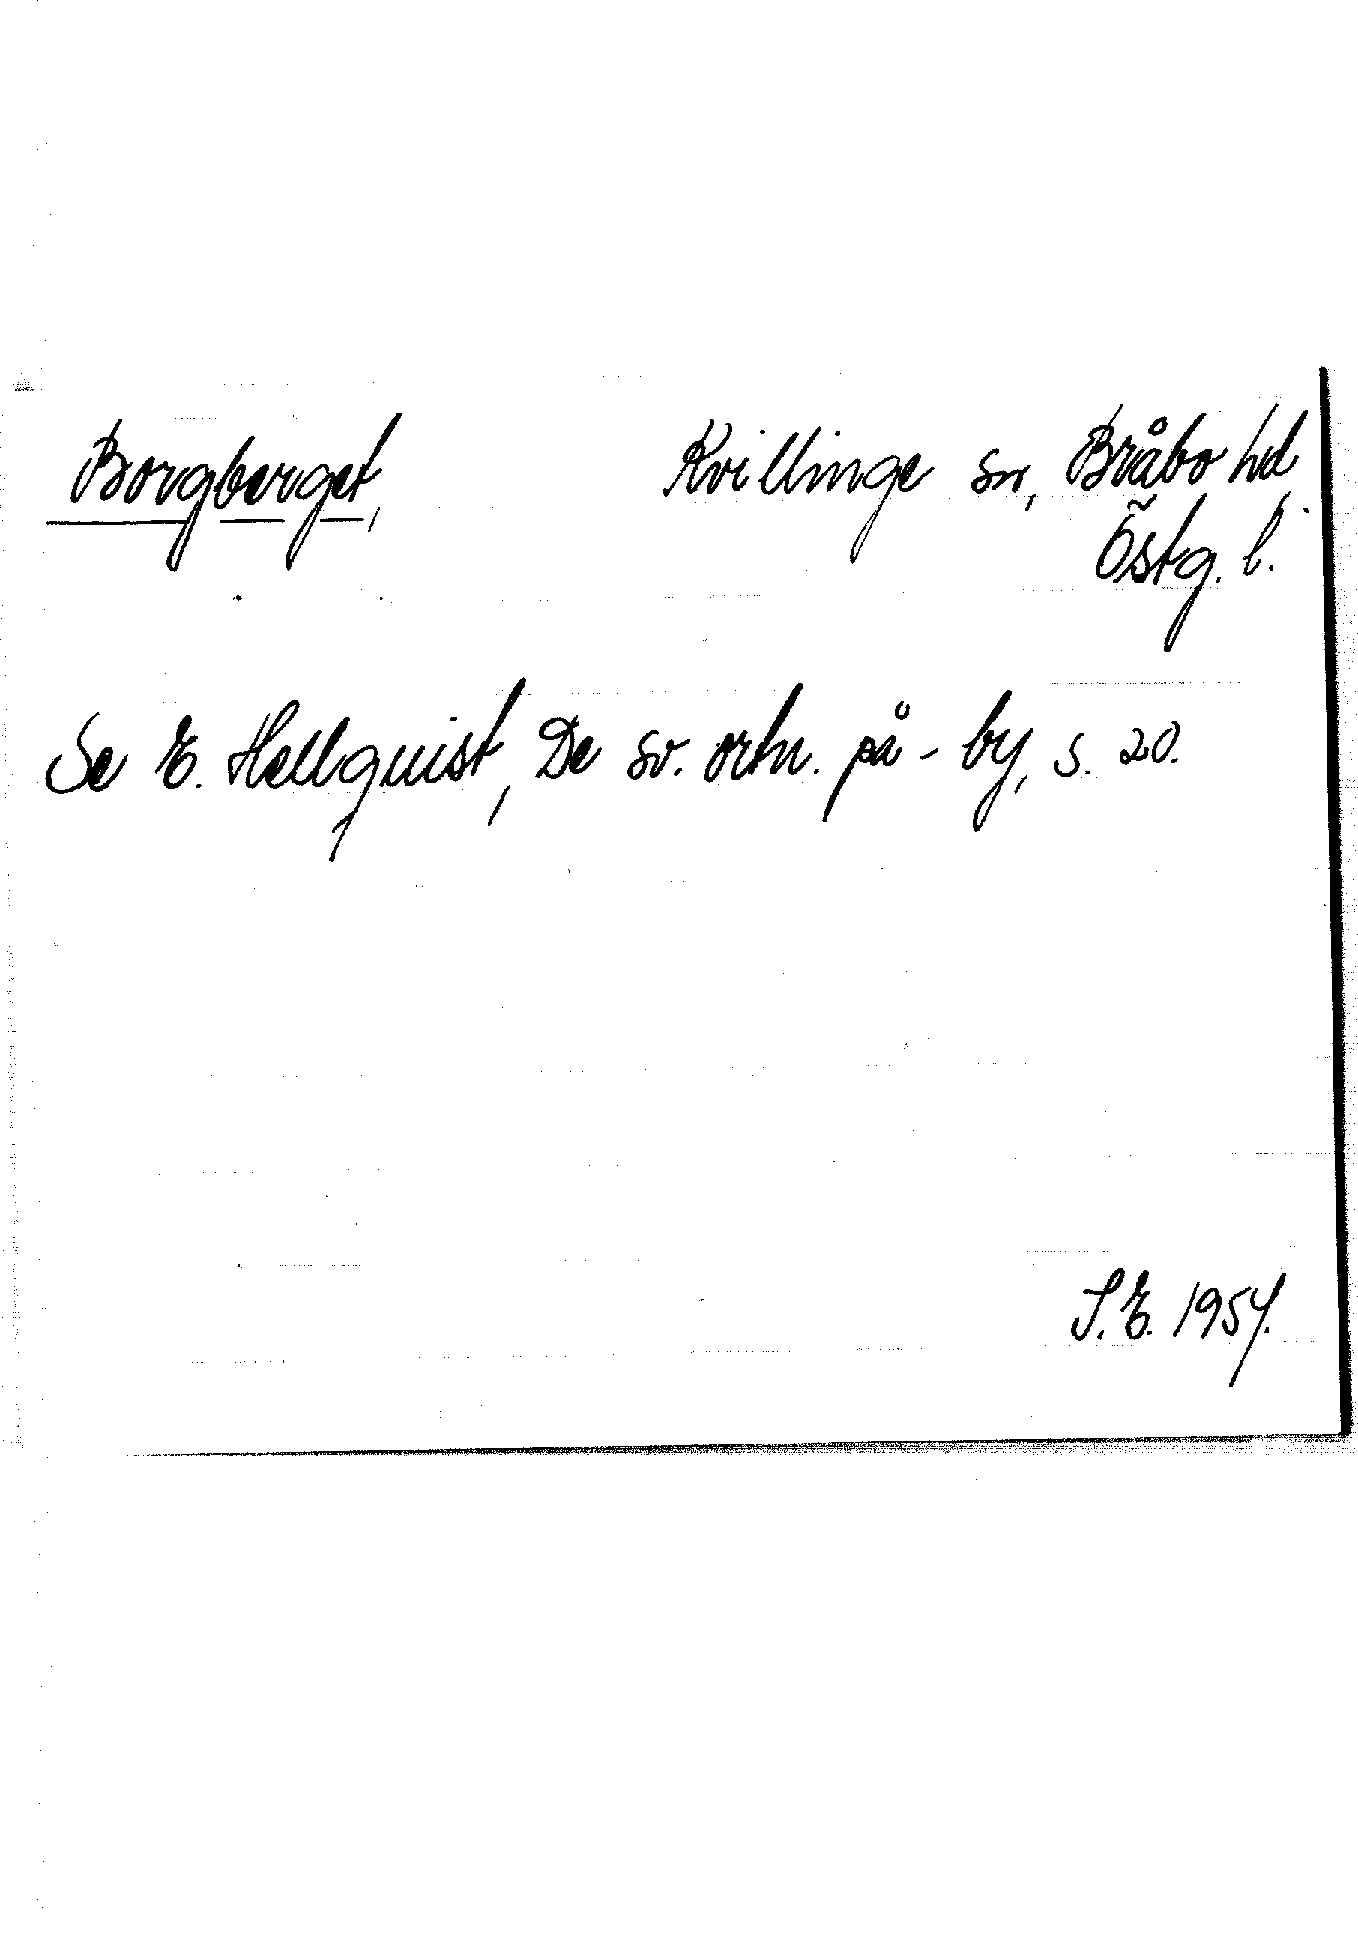 Borgberget, Kvillinge sn, Bråbo hd,
Östg. l.
Se E. Hellquist, De sv. ortn. på -by, s. 20.
S.E. 1954.